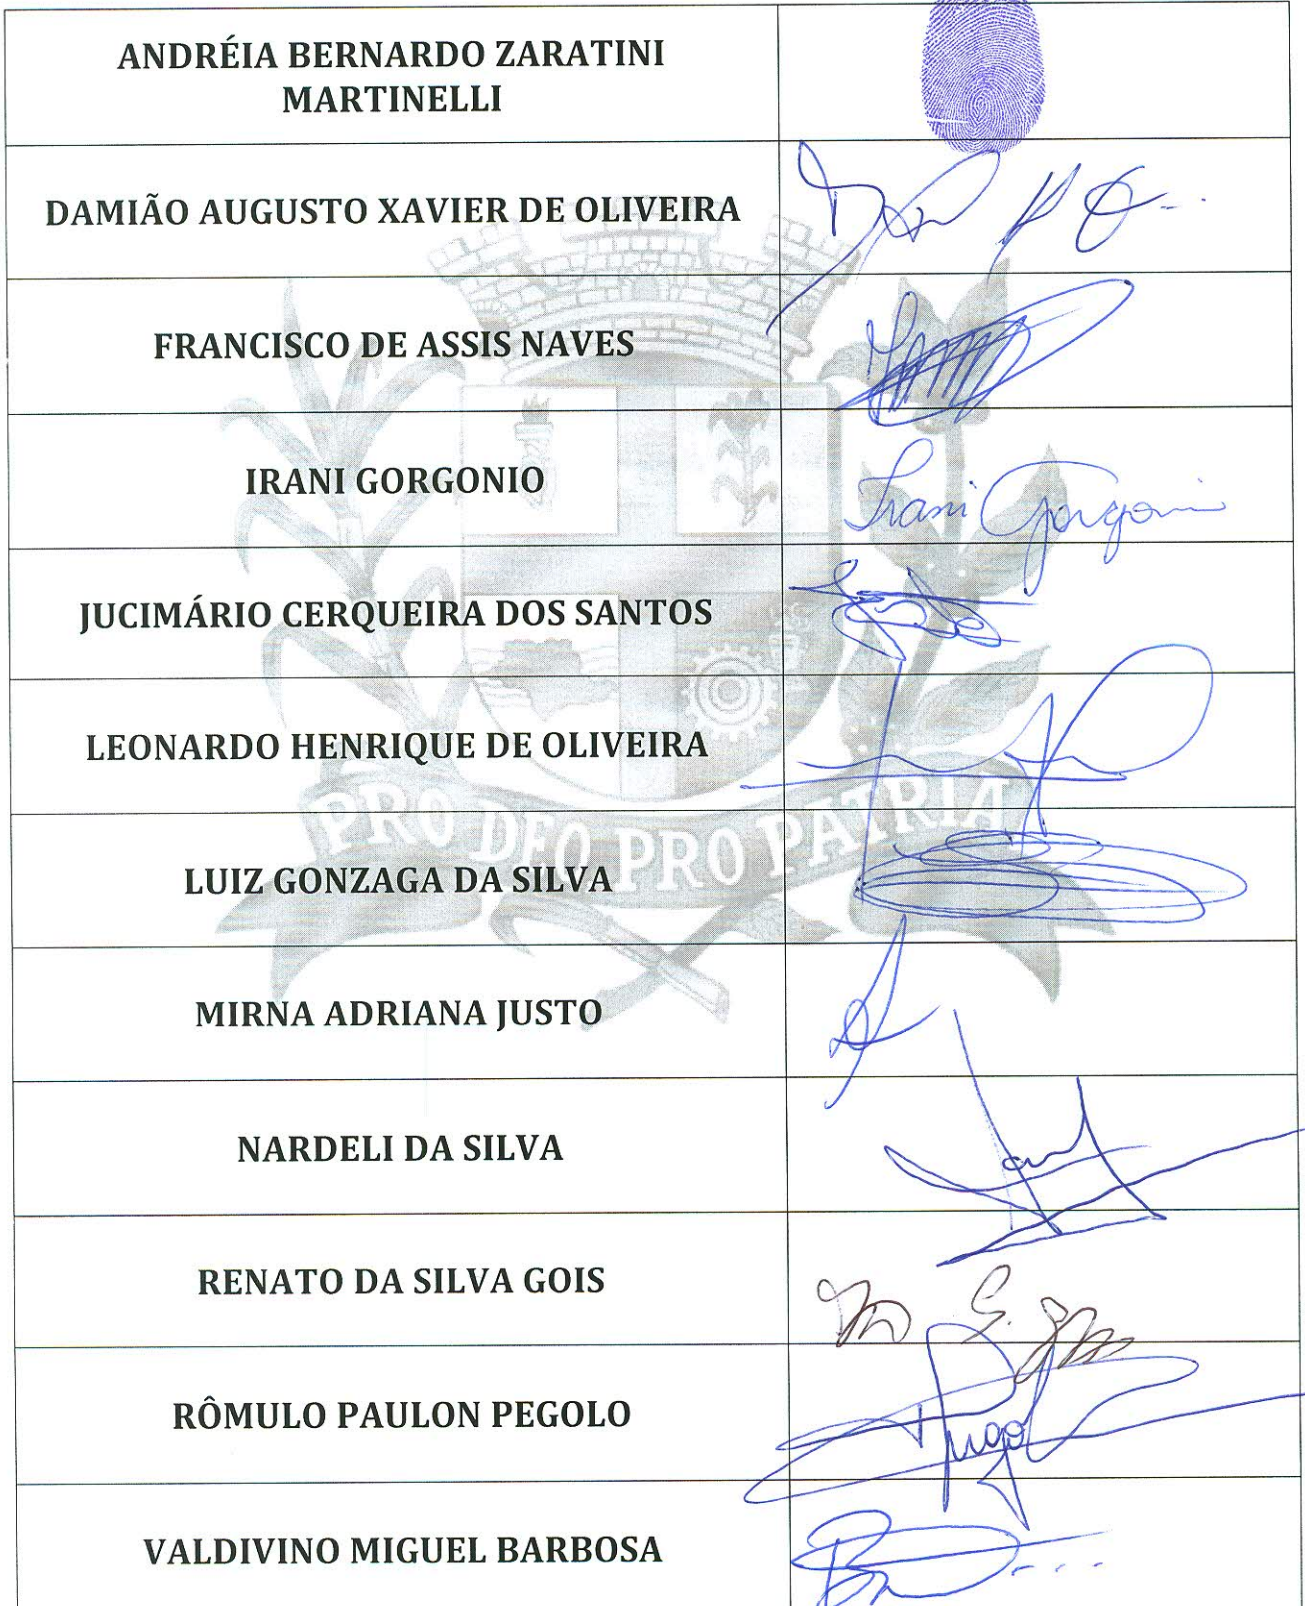 ANDRÉIA BERNARDO ZARATINI
MARTINELLI
DAMIÃO AUGUSTO XAVIER DE OLIVEIRA
FRANCISCO DE ASSIS NAVES
IRANI GORGONIO
Irani Gorgonio
JUCIMÁRIO CERQUEIRA DOS SANTOS
LEONARDO HENRIQUE DE OLIVEIRA
PRO DEO PRO PATRIA
LUIZ GONZAGA DA SILVA
MIRNA ADRIANA JUSTO
NARDELI DA SILVA
RENATO DA SILVA GOIS
RÔMULO PAULON PEGOLO
VALDIVINO MIGUEL BARBOSA